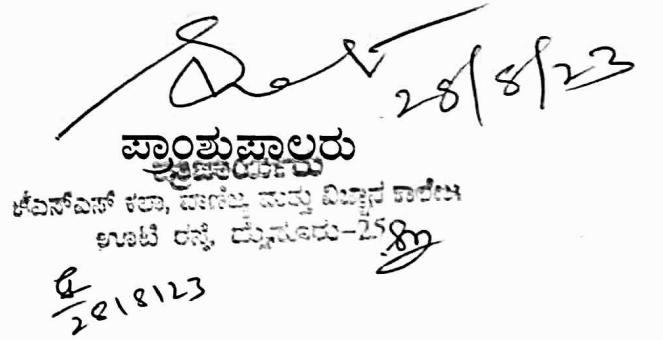 28/8/23
ಪ್ರಾಂಶುಪಾಲರು
ಜೆಎಸ್ಎಸ್ ಕಲಾ, ವಾಣಿಜ್ಯ ಮತ್ತು ವಿಜ್ಞಾನ ಕಾಲೇಜು
ಊಟಿ ರಸ್ತೆ, ಮೈಸೂರು-25
28/8/23